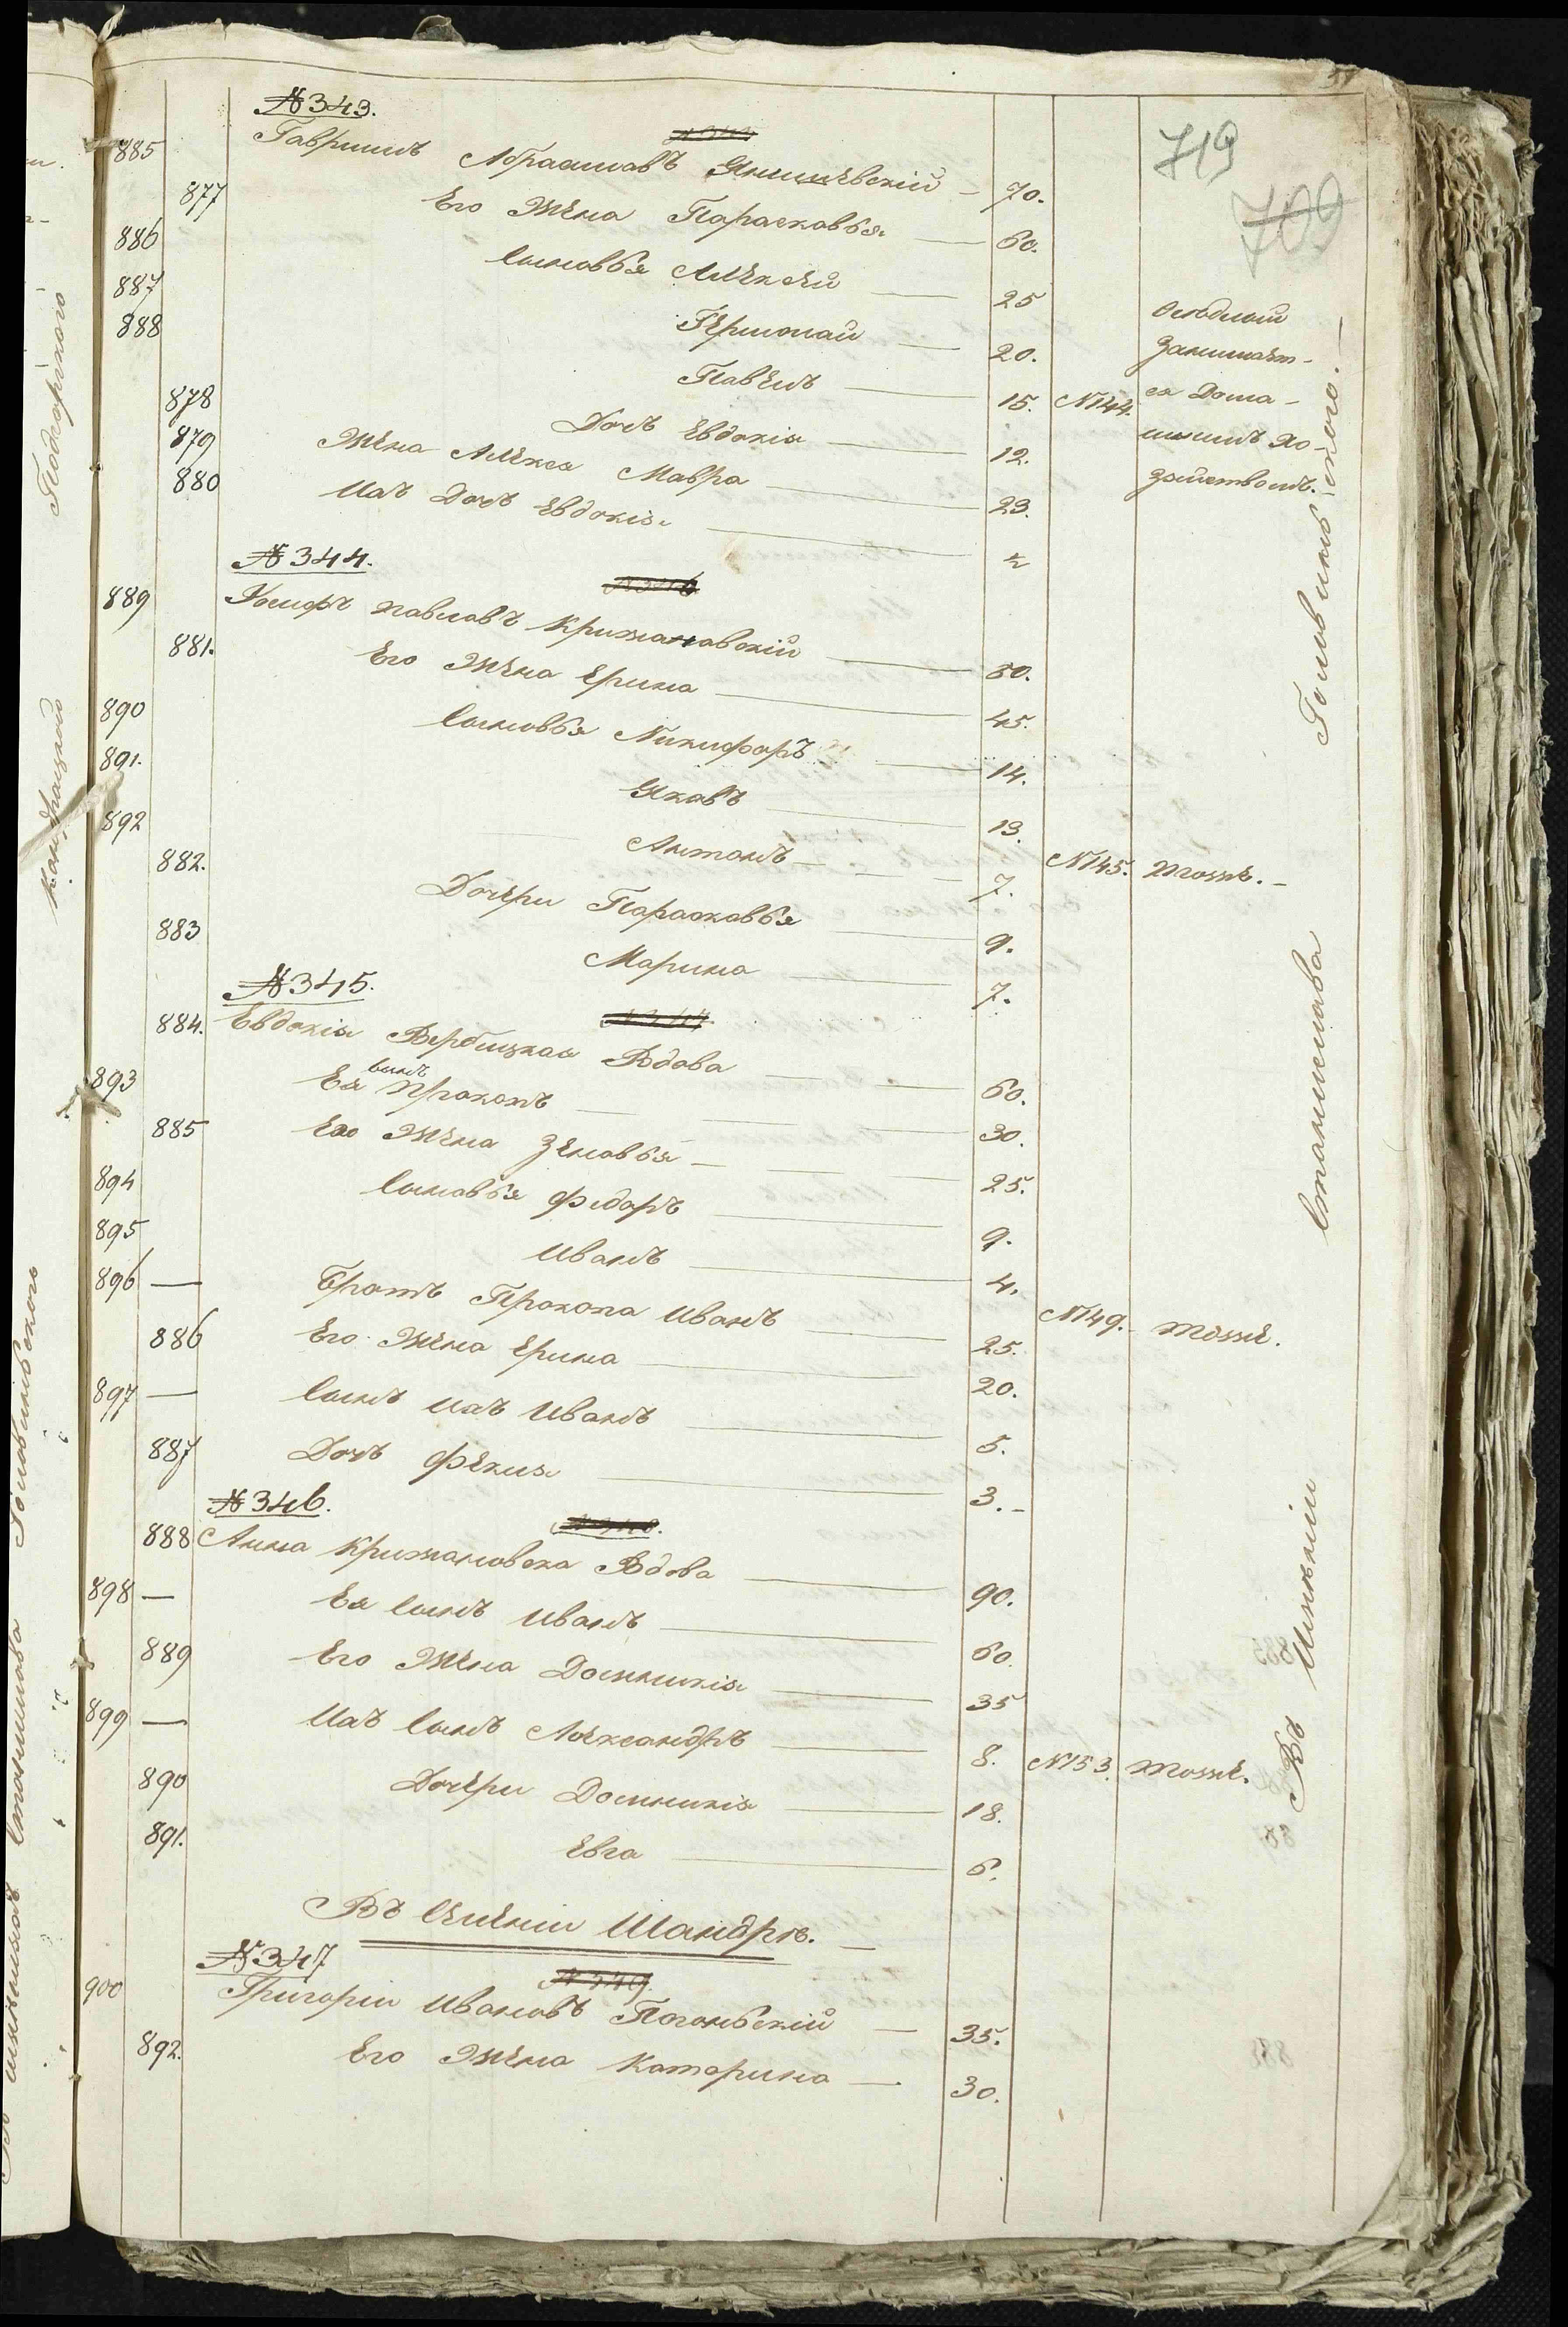 719
709
№ 343.
885 Гавриилъ Абрамовъ Янишевскій — 70.
877 Его Жена Парасковья — 60.
886 Сыновья Алексей — 25
887 Гермолай — 20.
888 Павелъ — 15. №144.
878 Дочь Евдокія — 12.
879 Жена Алекса Мавра — 23.
880 Ихъ Дочь Евдокія — 2
занимает-
ся Дома-
шнимъ хо-
зяйствомъ.
№ 344.
889 Іосифъ Павловъ Крижановскій — 50.
881. Его Жена Ерина — 45.
890 Сыновья Никифоръ — 14.
891. Яковъ — 13.
892 Антонъ — 7. №145. тоже. —
882. Дочери Парасковья — 9.
883 Марина — 7.
№ 345.
884. Евдокія Вербицкая Вдова — 60.
893 Ея сынъ Прокопъ — 30.
885 Его Жена Зеновья — 25.
894 Сыновья Федоръ — 9.
895 Иванъ — 4.
896 — Братъ Прокопа Иванъ — 25. №149. тоже.
886 Его Жена Ерина — 20.
897 — Сынъ Ихъ Иванъ — 5.
887 Дочь Фекла — 3. —
№ 346.
888 Анна Крижановска Вдова — 90.
898 — Ея Сынъ Иванъ — 60.
889 Его Жена Домникія — 35
899 — Ихъ Сынъ Александръ — 8. №153. тоже.
890 Дочери Домникія — 18.
891. Евга — 6.
Въ Селеніи Шандрѣ. —
№ 347
900 Григорій Ивановъ Поганьскій — 35.
892. Его Жена Катарина — 30.
Въ Имѣніи Станислава Головинскаго. —